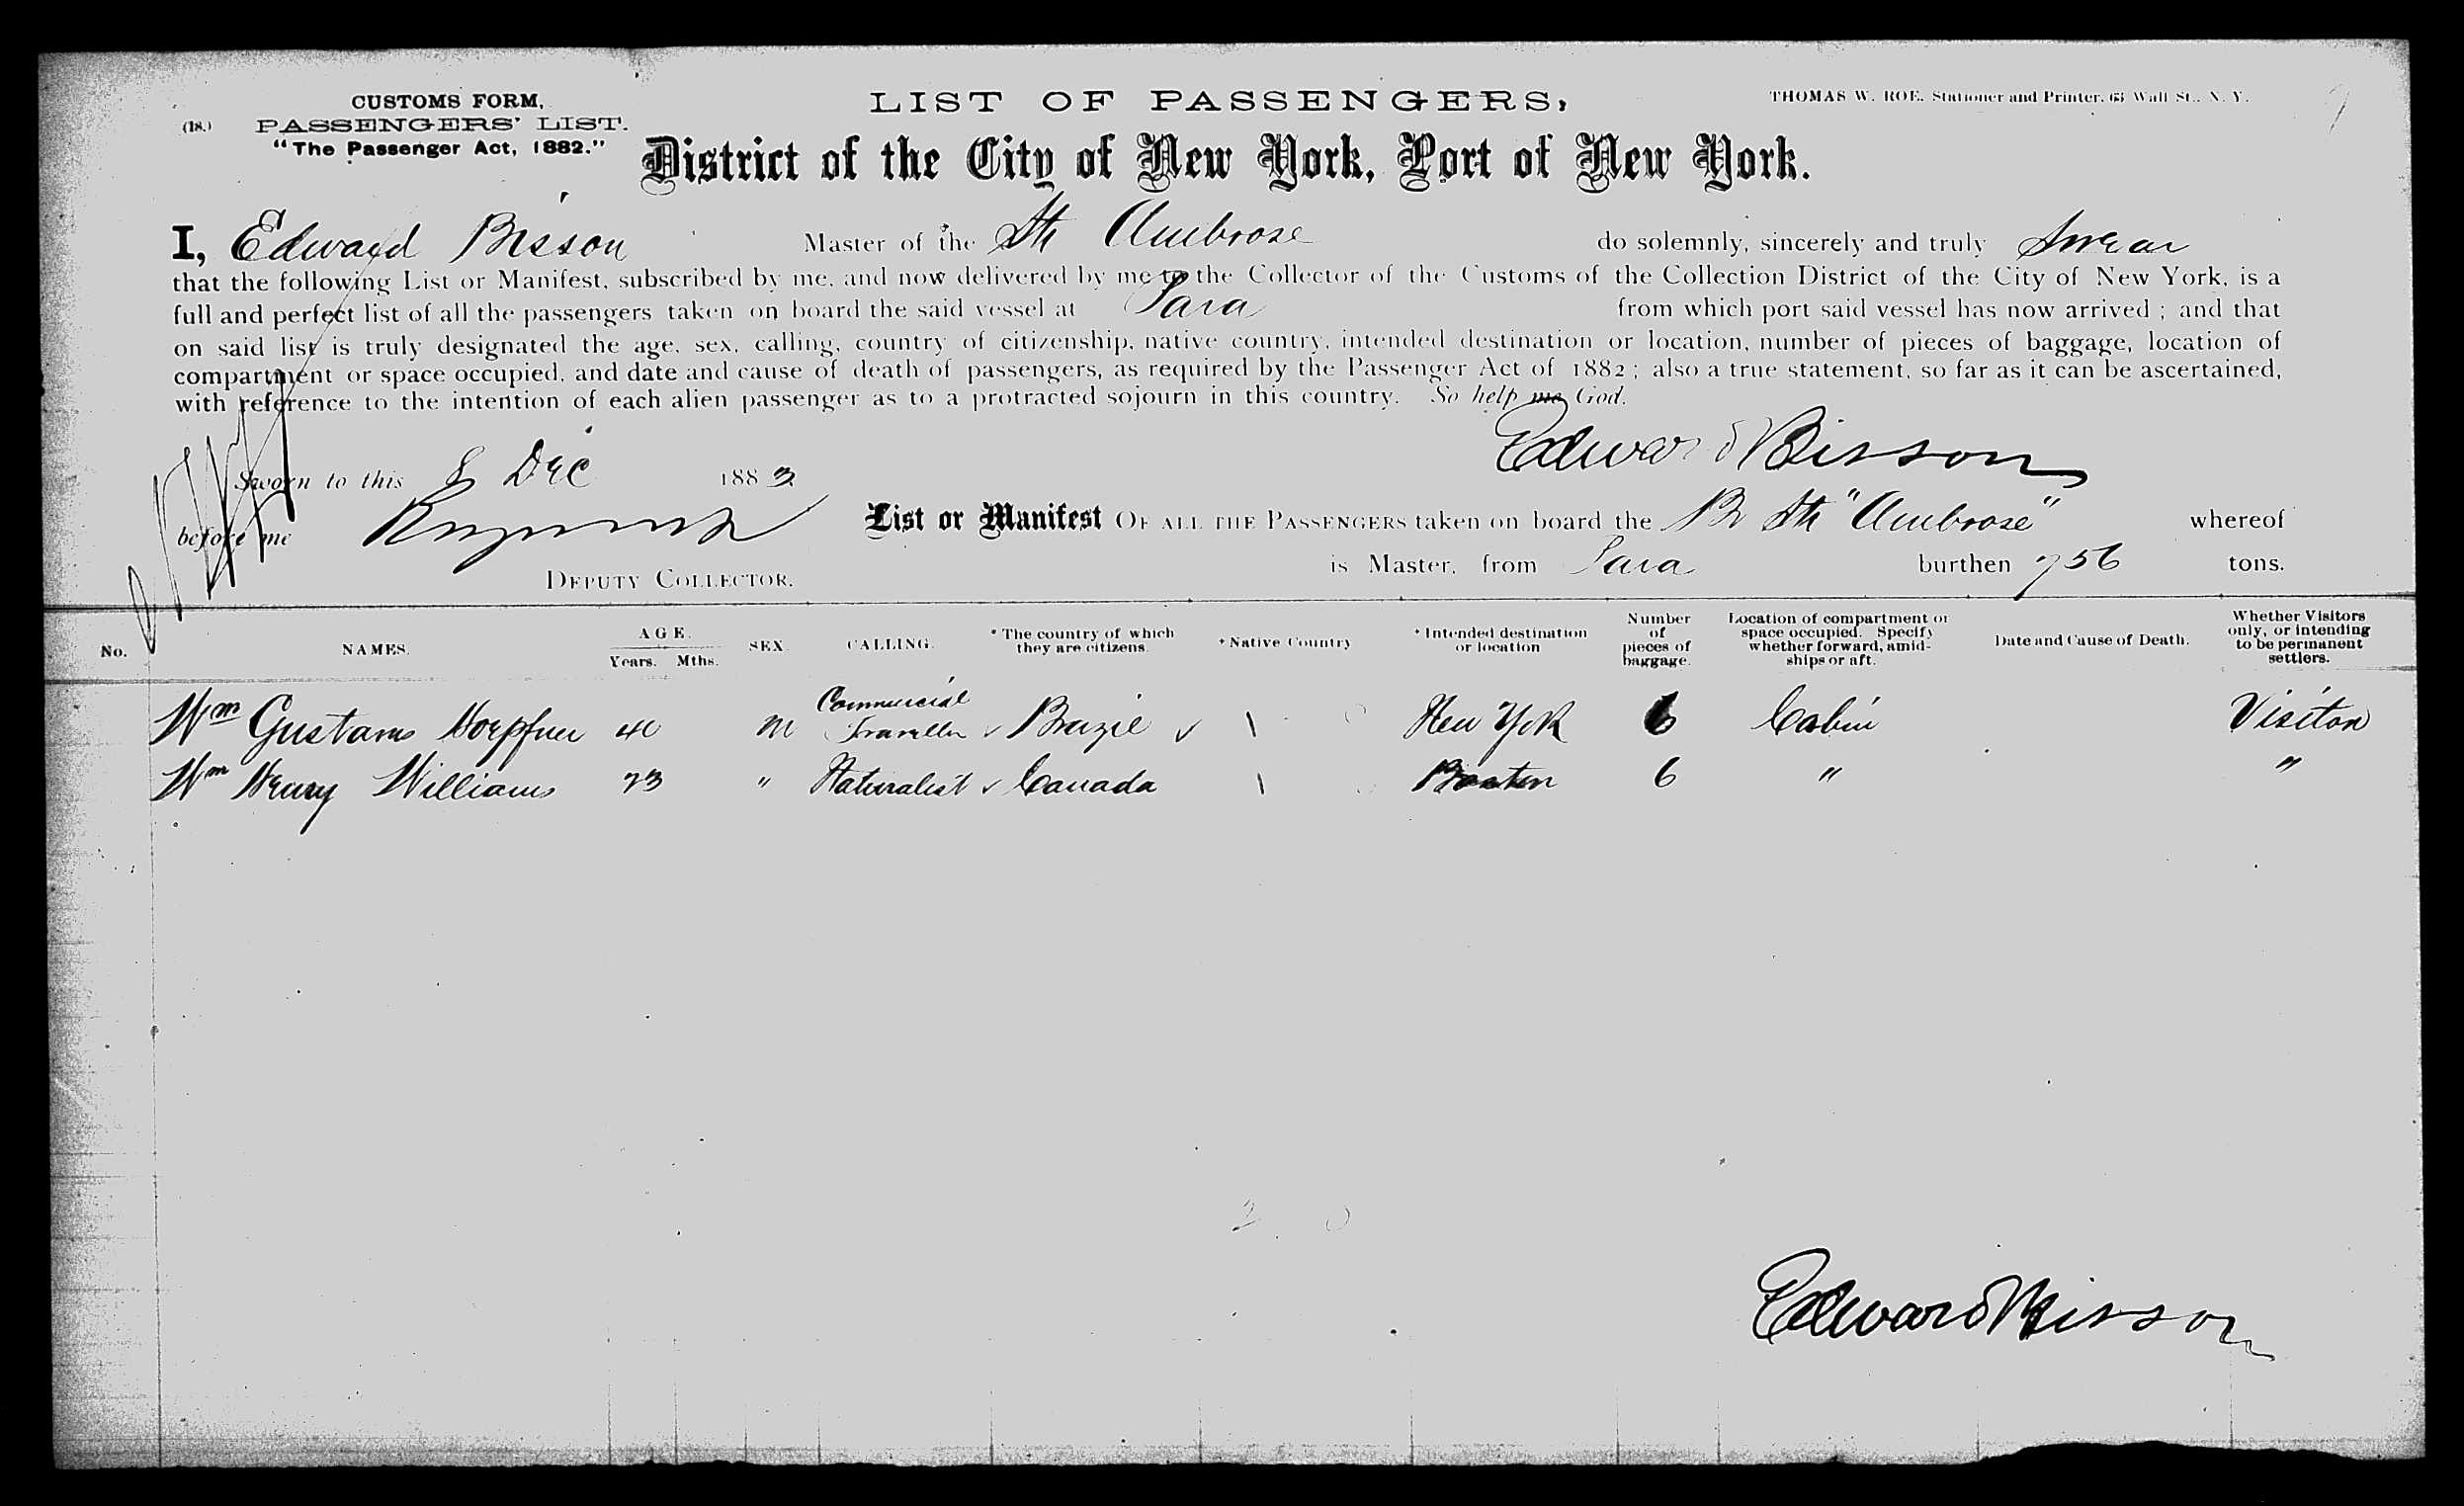 CUSTOMS FORM,
(18.) PASSENGERS' LIST.
"The Passenger Act, 1882."
LIST OF PASSENGERS,
THOMAS W. ROE, Stationer and Printer, 63 Wall St., N. Y.
9
District of the City of New York, Port of New York.
I, Edward Bisson Master of the Str Ambrose do solemnly, sincerely and truly Swear
that the following List or Manifest, subscribed by me, and now delivered by me to the Collector of the Customs of the Collection District of the City of New York, is a
full and perfect list of all the passengers taken on board the said vessel at Para from which port said vessel has now arrived ; and that
on said list is truly designated the age, sex, calling, country of citizenship, native country, intended destination or location, number of pieces of baggage, location of
compartment or space occupied, and date and cause of death of passengers, as required by the Passenger Act of 1882 ; also a true statement, so far as it can be ascertained,
with reference to the intention of each alien passenger as to a protracted sojourn in this country. So help me God.
Edward Bisson
Sworn to this 8 Dec 1883
before me
DEPUTY COLLECTOR.
List or Manifest OF ALL THE PASSENGERS taken on board the Br Str "Ambrose" whereof
is Master, from Para burthen 756 tons.
No. NAMES. AGE. Years. Mths. SEX. CALLING. * The country of which they are citizens. * Native Country * Intended destination or location Number of pieces of baggage. Location of compartment or space occupied. Specify whether forward, amidships or aft. Date and Cause of Death. Whether Visitors only, or intending to be permanent settlers.
Wm Gustavo Hoepfner 40 M Commercial Traveller Brazil \ New York 6 Cabin Visitor
Wm Henry Williams 23 " Naturalist Canada \ Boston 6 " "
2 0
Edward Bisson